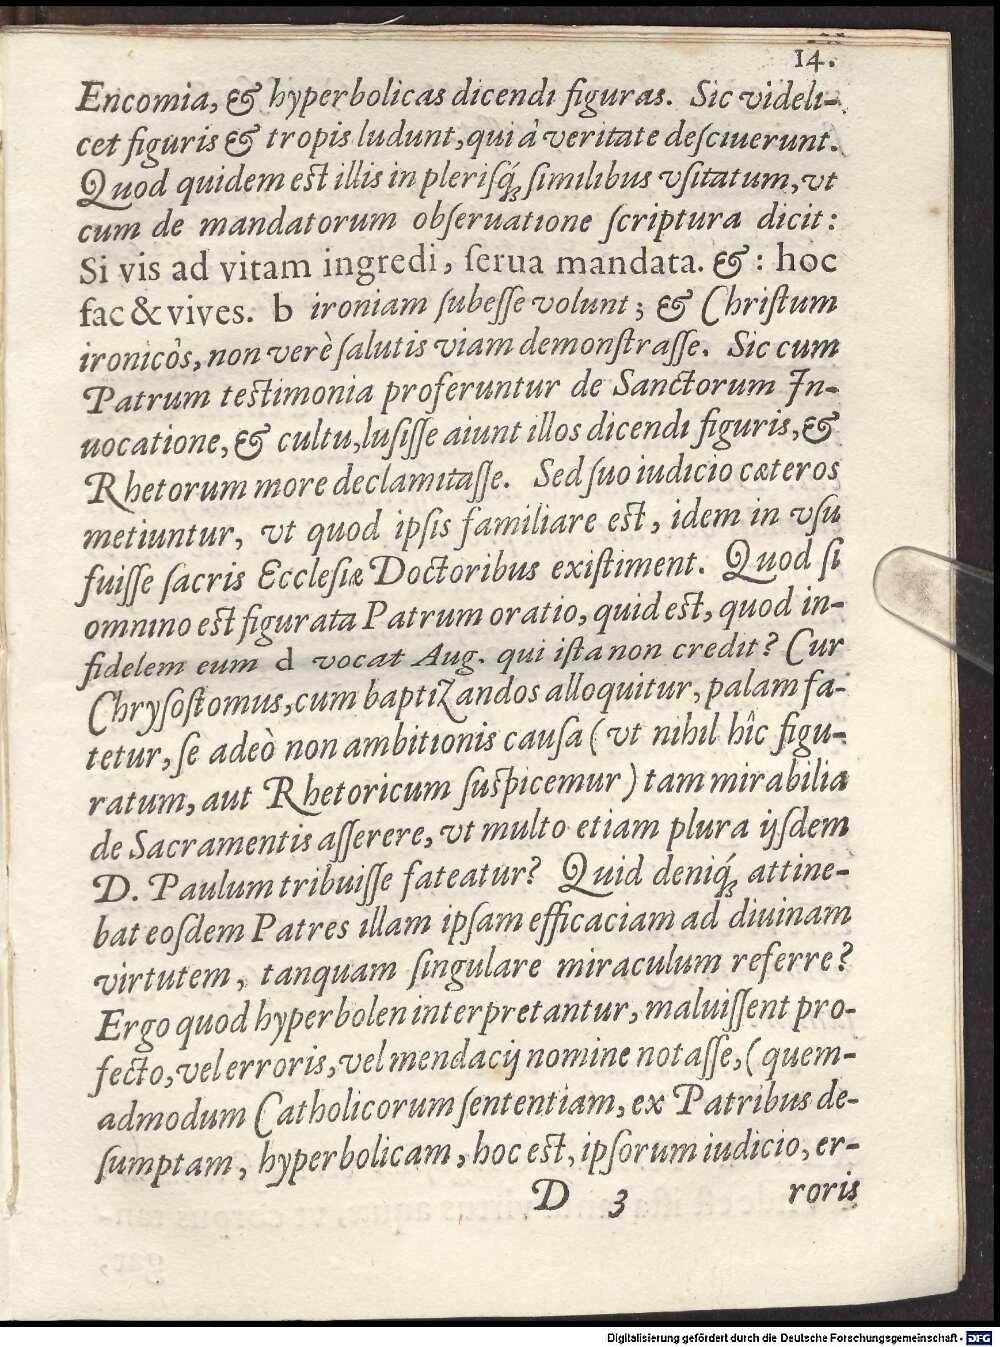 14.
Encomia, & hyperbolicas dicendi figuras. Sic videli-
cet figuris & tropis ludunt, qui à veritate deſciuerunt.
Quod quidem est illis in pleriſq́ʒ ſimilibus vſitatum, vt
cum de mandatorum obſeruatione ſcriptura dicit:
Si vis ad vitam ingredi, ſerua mandata. & : hoc
fac & vives. b ironiam ſubeſſe volunt; & Chriſtum
ironicω̂s, non verè ſalutis viam demonſtraſſe. Sic cum
Patrum testimonia proferuntur de Sanctorum In-
uocatione, & cultu, luſiſſe aiunt illos dicendi figuris, &
Rhetorum more declamitaſſe. Sed ſuo iudicio cæteros
metiuntur, vt quod ipſis familiare est, idem in vſu
fuiſſe ſacris Eccleſiæ Doctoribus exiſtiment. Quod ſi
omnino est figurata Patrum oratio, quid est, quod in-
fidelem eum d vocat Aug. qui iſta non credit? Cur
Chryſoſtomus, cum baptizandos alloquitur, palam fa-
tetur, ſe adeò non ambitionis cauſa (vt nihil hîc figu-
ratum, aut Rhetoricum ſuspicemur) tam mirabilia
de Sacramentis aſſerere, vt multo etiam plura ijſdem
D. Paulum tribuiſſe fateatur? Quid deniq́ʒ attine-
bat eoſdem Patres illam ipſam efficaciam ad diuinam
virtutem, tanquam ſingulare miraculum referre?
Ergo quod hyperbolen interpretantur, maluiſſent pro-
fecto, vel erroris, vel mendacij nomine notaſſe, (quem-
admodum Catholicorum ſententiam, ex Patribus de-
ſumptam, hyperbolicam, hoc est, ipſorum iudicio, er-
D 3 roris
Digitalisierung gefördert durch die Deutsche Forschungsgemeinschaft - DFG